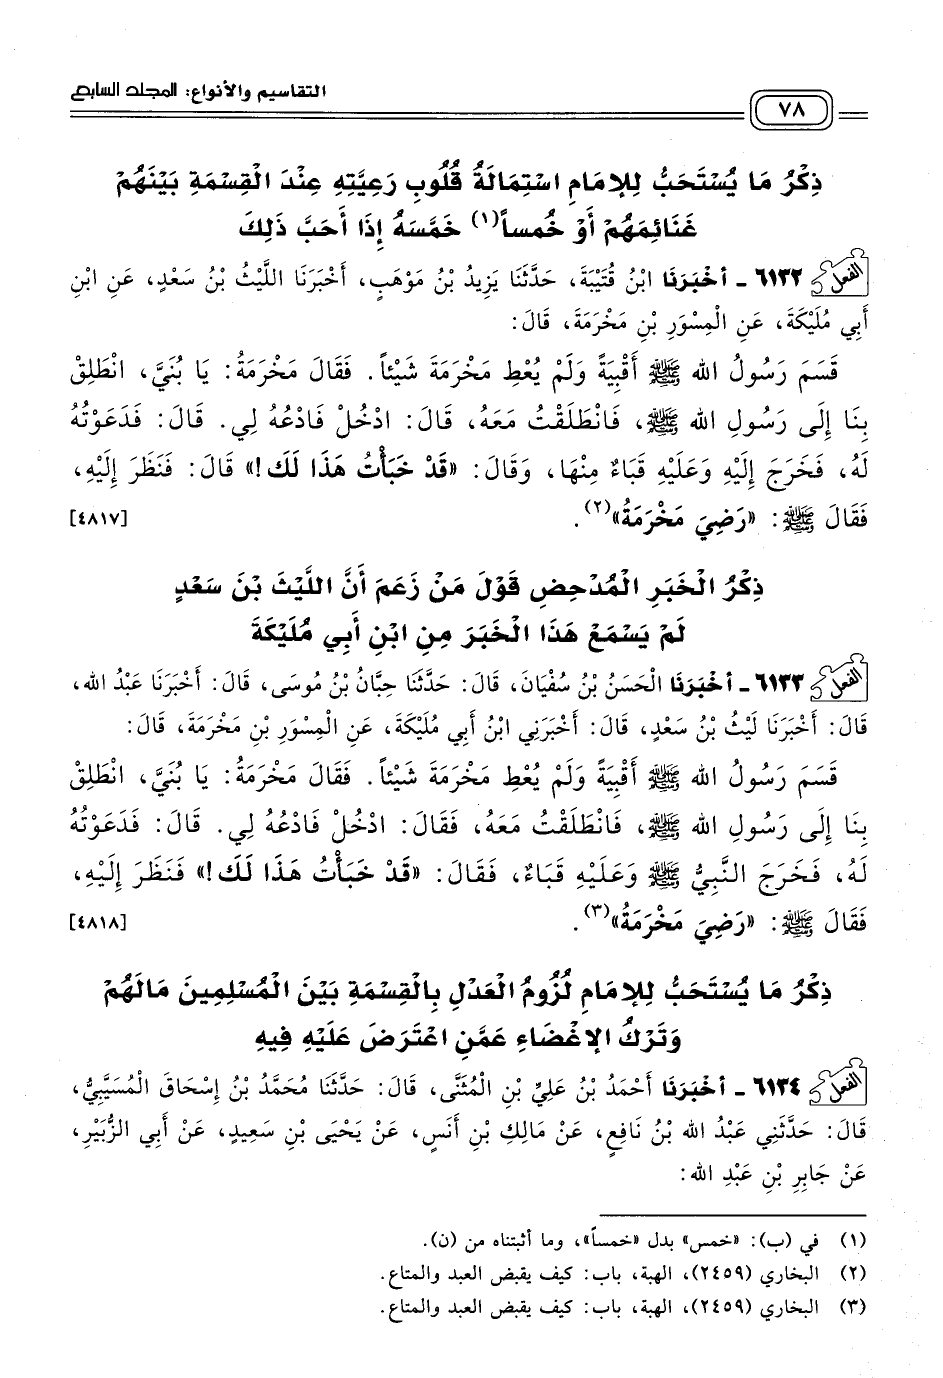 التقاسيم والأنواع: المجلد السابع
٧٨
ذِكْرُ مَا يُسْتَحَبُّ لِلإمَامِ اسْتِمَالَةُ قُلُوبِ رَعِيَّتِهِ عِنْدَ الْقِسْمَةِ بَيْنَهُمْ
غَنَائِمَهُمْ أَوْ خُمساً(١) خَمَّسَهُ إِذَا أَحَبَّ ذَلِكَ
الفعل ٦١٣٢ - أَخْبَرَنَا ابْنُ قُتَيْبَةَ، حَدَّثَنَا يَزِيدُ بْنُ مَوْهَبٍ، أَخْبَرَنَا اللَّيْثُ بْنُ سَعْدٍ، عَنِ ابْنِ
أَبِي مُلَيْكَةَ، عَنِ الْمِسْوَرِ بْنِ مَخْرَمَةَ، قَالَ:
قَسَمَ رَسُولُ الله ﷺ أَقْبِيَةً وَلَمْ يُعْطِ مَخْرَمَةَ شَيْئاً. فَقَالَ مَخْرَمَةُ: يَا بُنَيَّ، انْطَلِقْ
بِنَا إِلَى رَسُولِ الله ﷺ، فَانْطَلَقْتُ مَعَهُ، قَالَ: ادْخُلْ فَادْعُهُ لِي. قَالَ: فَدَعَوْتُهُ
لَهُ، فَخَرَجَ إِلَيْهِ وَعَلَيْهِ قَبَاءٌ مِنْهَا، وَقَالَ: «قَدْ خَبَأْتُ هَذَا لَكَ!» قَالَ: فَنَظَرَ إِلَيْهِ،
فَقَالَ ﷺ: «رَضِيَ مَخْرَمَةُ»(٢). [٤٨١٧]
ذِكْرُ الْخَبَرِ الْمُدْحِضِ قَوْلَ مَنْ زَعَمَ أَنَّ اللَّيْثَ بْنَ سَعْدٍ
لَمْ يَسْمَعْ هَذَا الْخَبَرَ مِنِ ابْنِ أَبِي مُلَيْكَةَ
الفعل ٦١٣٣ - أَخْبَرَنَا الْحَسَنُ بْنُ سُفْيَانَ، قَالَ: حَدَّثَنَا حِبَّانُ بْنُ مُوسَى، قَالَ: أَخْبَرَنَا عَبْدُ الله،
قَالَ: أَخْبَرَنَا لَيْثُ بْنُ سَعْدٍ، قَالَ: أَخْبَرَنِي ابْنُ أَبِي مُلَيْكَةَ، عَنِ الْمِسْوَرِ بْنِ مَخْرَمَةَ، قَالَ:
قَسَمَ رَسُولُ الله ﷺ أَقْبِيَةً وَلَمْ يُعْطِ مَخْرَمَةَ شَيْئاً. فَقَالَ مَخْرَمَةُ: يَا بُنَيَّ، انْطَلِقْ
بِنَا إِلَى رَسُولِ الله ﷺ، فَانْطَلَقْتُ مَعَهُ، فَقَالَ: ادْخُلْ فَادْعُهُ لِي. قَالَ: فَدَعَوْتُهُ
لَهُ، فَخَرَجَ النَّبِيُّ ﷺ وَعَلَيْهِ قَبَاءٌ، فَقَالَ: «قَدْ خَبَأْتُ هَذَا لَكَ!» فَنَظَرَ إِلَيْهِ،
فَقَالَ ﷺ: «رَضِيَ مَخْرَمَةُ»(٣). [٤٨١٨]
ذِكْرُ مَا يُسْتَحَبُّ لِلإمَامِ لُزُومُ الْعَدْلِ بِالْقِسْمَةِ بَيْنَ الْمُسْلِمِينَ مَالَهُمْ
وَتَرْكُ الإغْضَاءِ عَمَّنِ اعْتَرَضَ عَلَيْهِ فِيهِ
الفعل ٦١٣٤ - أَخْبَرَنَا أَحْمَدُ بْنُ عَلِيِّ بْنِ الْمُثَنَّى، قَالَ: حَدَّثَنَا مُحَمَّدُ بْنُ إِسْحَاقَ الْمُسَيَّبِيُّ،
قَالَ: حَدَّثَنِي عَبْدُ الله بْنُ نَافِعٍ، عَنْ مَالِكِ بْنِ أَنَسٍ، عَنْ يَحْيَى بْنِ سَعِيدٍ، عَنْ أَبِي الزُّبَيْرِ،
عَنْ جَابِرِ بْنِ عَبْدِ الله:
(١) في (ب): «خمس» بدل «خمساً»، وما أثبتناه من (ن).
(٢) البخاري (٢٤٥٩)، الهبة، باب: كيف يقبض العبد والمتاع.
(٣) البخاري (٢٤٥٩)، الهبة، باب: كيف يقبض العبد والمتاع.